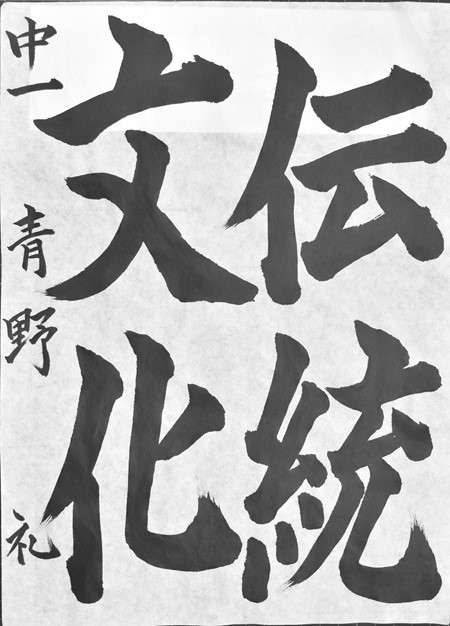 伝統
文化
中一 青野 礼